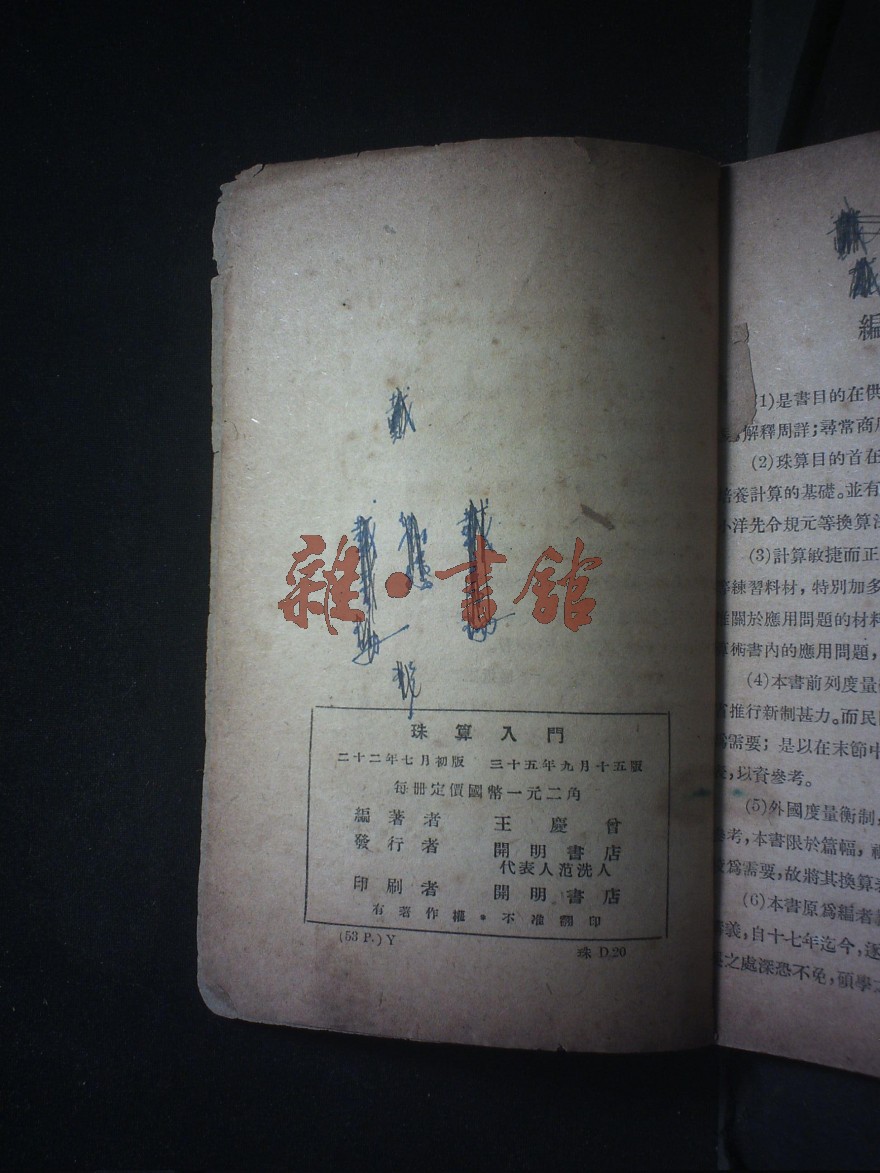 雜·書館
珠算入門
二十二年七月初版 三十五年九月十五版
每册定價國幣一元二角
編著者 王慶曾
發行者 開明書店
代表人范洗人
印刷者 開明書店
有著作權·不准翻印
(53 P.) Y
珠 D.20
編
(1)是書目的在供
解釋周詳;尋常商
(2)珠算目的首在
培養計算的基礎。並有
小洋先令規元等換算
(3)計算敏捷而正
等練習料材,特別加多
關於應用問題的材料
算術書內的應用問題,
(4)本書前列度量
推行新制甚力。而民
需要;是以在末節中
,以資參考。
(5)外國度量衡制,
參考,本書限於篇幅,
爲需要,故將其換算
(6)本書原爲編者
義,自十七年迄今,逐
之處深恐不免,碩學